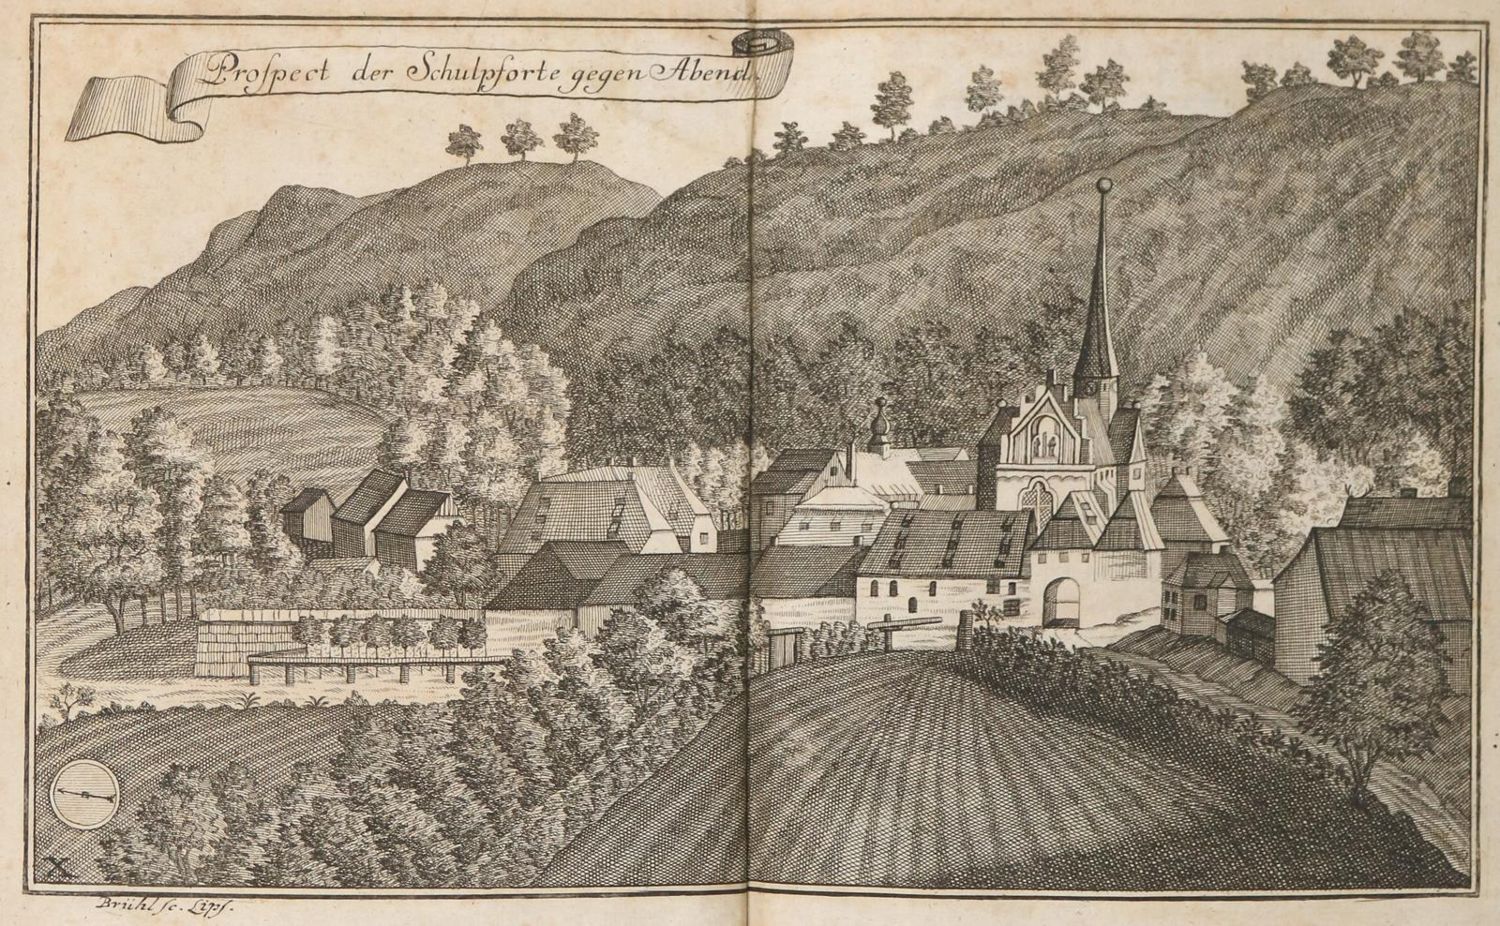 Proſpect der Schulpforte gegen Abend.
Brühl ſc. Lipſ.